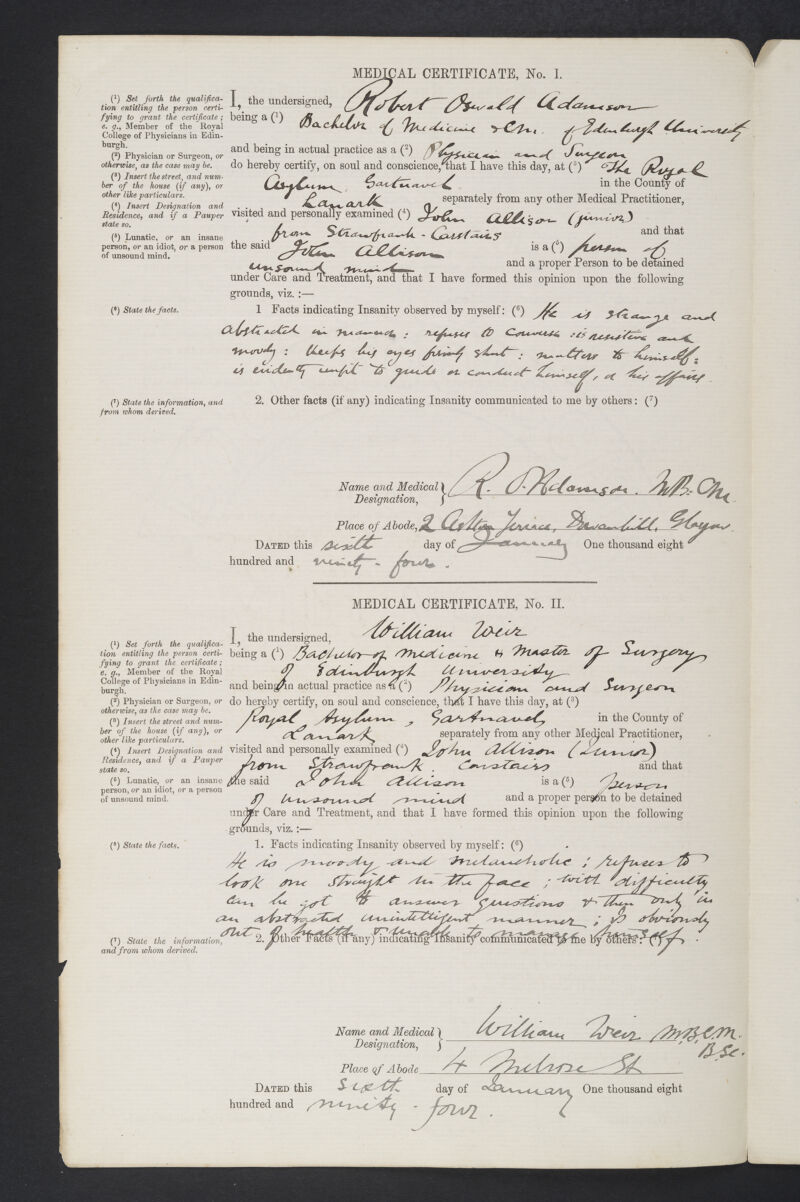 MEDICAL CERTIFICATE, No. I.
(¹) Set forth the qualifica-
tion entitling the person certi-
fying to grant the certificate;
e. g., Member of the Royal
College of Physicians in Edin-
burgh.
(²) Physician or Surgeon, or
otherwise, as the case may be.
(³) Insert the street, and num-
ber of the house (if any), or
other like particulars.
(⁴) Insert Designation and
Residence, and if a Pauper
state so.
(⁵) Lunatic, or an insane
person, or an idiot, or a person
of unsound mind.
I, the undersigned, Robert Oswald Adamson
being a (¹) Bachelor of Medicine & Cm. of Edinburgh University
and being in actual practice as a (²) Physician and Surgeon
do hereby certify, on soul and conscience, that I have this day, at (³) The Royal
Asylum, Gartnavel in the County of
Lanark separately from any other Medical Practitioner,
visited and personally examined (⁴) John Allison (junior)
from Strawfrank - Carstairs and that
the said John Allison is a (⁵) person of
unsound mind and a proper Person to be detained
under Care and Treatment, and that I have formed this opinion upon the following
grounds, viz. :—
(⁶) State the facts.
1 Facts indicating Insanity observed by myself: (⁶) He is strange and
abstracted in manner: refuses to converse: is resistive and
moody: keeps his eyes firmly shut: mutters to himself:
is evidently unfit to guide or conduct himself, or his affairs.
(⁷) State the information, and
from whom derived.
2. Other facts (if any) indicating Insanity communicated to me by others: (⁷)
Name and Medical Designation, R. O. Adamson. M.B. Cm.
Place of Abode, 2 Terrace, Dowanhill, Glasgow.
DATED this sixth day of January One thousand eight
hundred and ninety - four.
MEDICAL CERTIFICATE, No. II.
(¹) Set forth the qualifica-
tion entitling the person certi-
fying to grant the certificate;
e. g., Member of the Royal
College of Physicians in Edin-
burgh.
(²) Physician or Surgeon, or
otherwise, as the case may be.
(³) Insert the street and num-
ber of the house (if any), or
other like particulars.
(⁴) Insert Designation and
Residence, and if a Pauper
state so.
(⁵) Lunatic, or an insane
person, or an idiot, or a person
of unsound mind.
I, the undersigned, William Weir
being a (¹) Bachelor of Medicine & Master of Surgery
of Edinburgh University
and being in actual practice as a (²) Physician and Surgeon
do hereby certify, on soul and conscience, that I have this day, at (³)
Royal Asylum, Gartnavel, in the County of
Lanark separately from any other Medical Practitioner,
visited and personally examined (⁴) John Allison (Junior)
from Strawfrank Carstairs and that
the said John Allison is a (⁵) person
of unsound mind and a proper person to be detained
under Care and Treatment, and that I have formed this opinion upon the following
grounds, viz. :—
(⁶) State the facts.
1. Facts indicating Insanity observed by myself: (⁶)
He is moody and melancholic; refuses to
look one straight in the face; with difficulty
can be got to answer questions & then only in
an abstracted unintelligent manner; is obviously
out of health & unable to manage himself.
(⁷) State the information,
and from whom derived.
2. Other Facts (if any) indicating Insanity communicated to me by others: (⁷)
Name and Medical Designation, William Weir M.B.C.M.
B.Sc.
Place of Abode 4 Melrose St
DATED this sixth day of January One thousand eight
hundred and ninety - four.